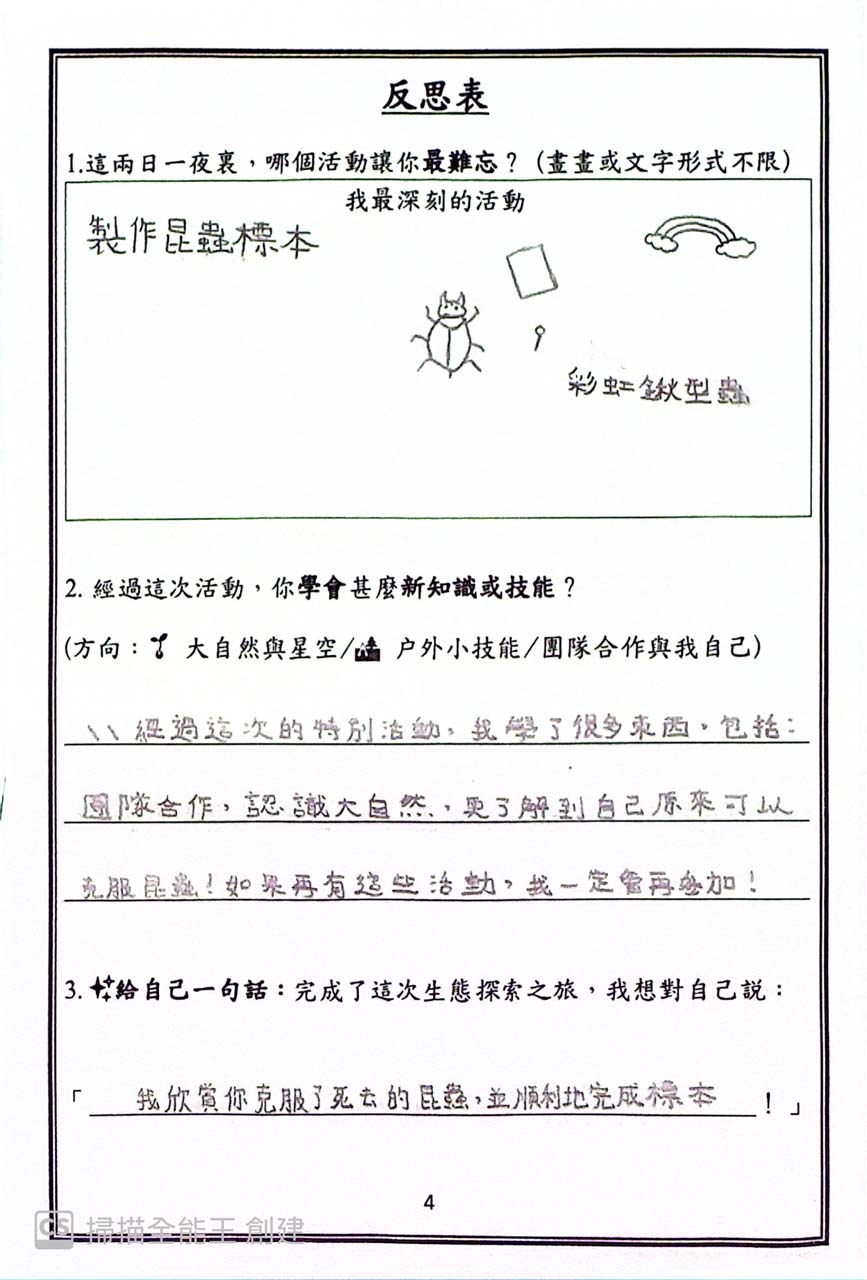 反思表
1.這兩日一夜裏，哪個活動讓你最難忘？(畫畫或文字形式不限)
我最深刻的活動
製作昆蟲標本
彩虹鍬型蟲
2. 經過這次活動，你學會甚麼新知識或技能？
(方向： 大自然與星空/ 户外小技能/團隊合作與我自己)
經過這次的特別活動，我學了很多東西，包括：
團隊合作，認識大自然，更了解到自己原來可以
克服昆蟲！如果再有這些活動，我一定會再參加！
3. 給自己一句話：完成了這次生態探索之旅，我想對自己説：
「我欣賞你克服了死去的昆蟲，並順利地完成標本！」
4
CS 掃描全能王 創建